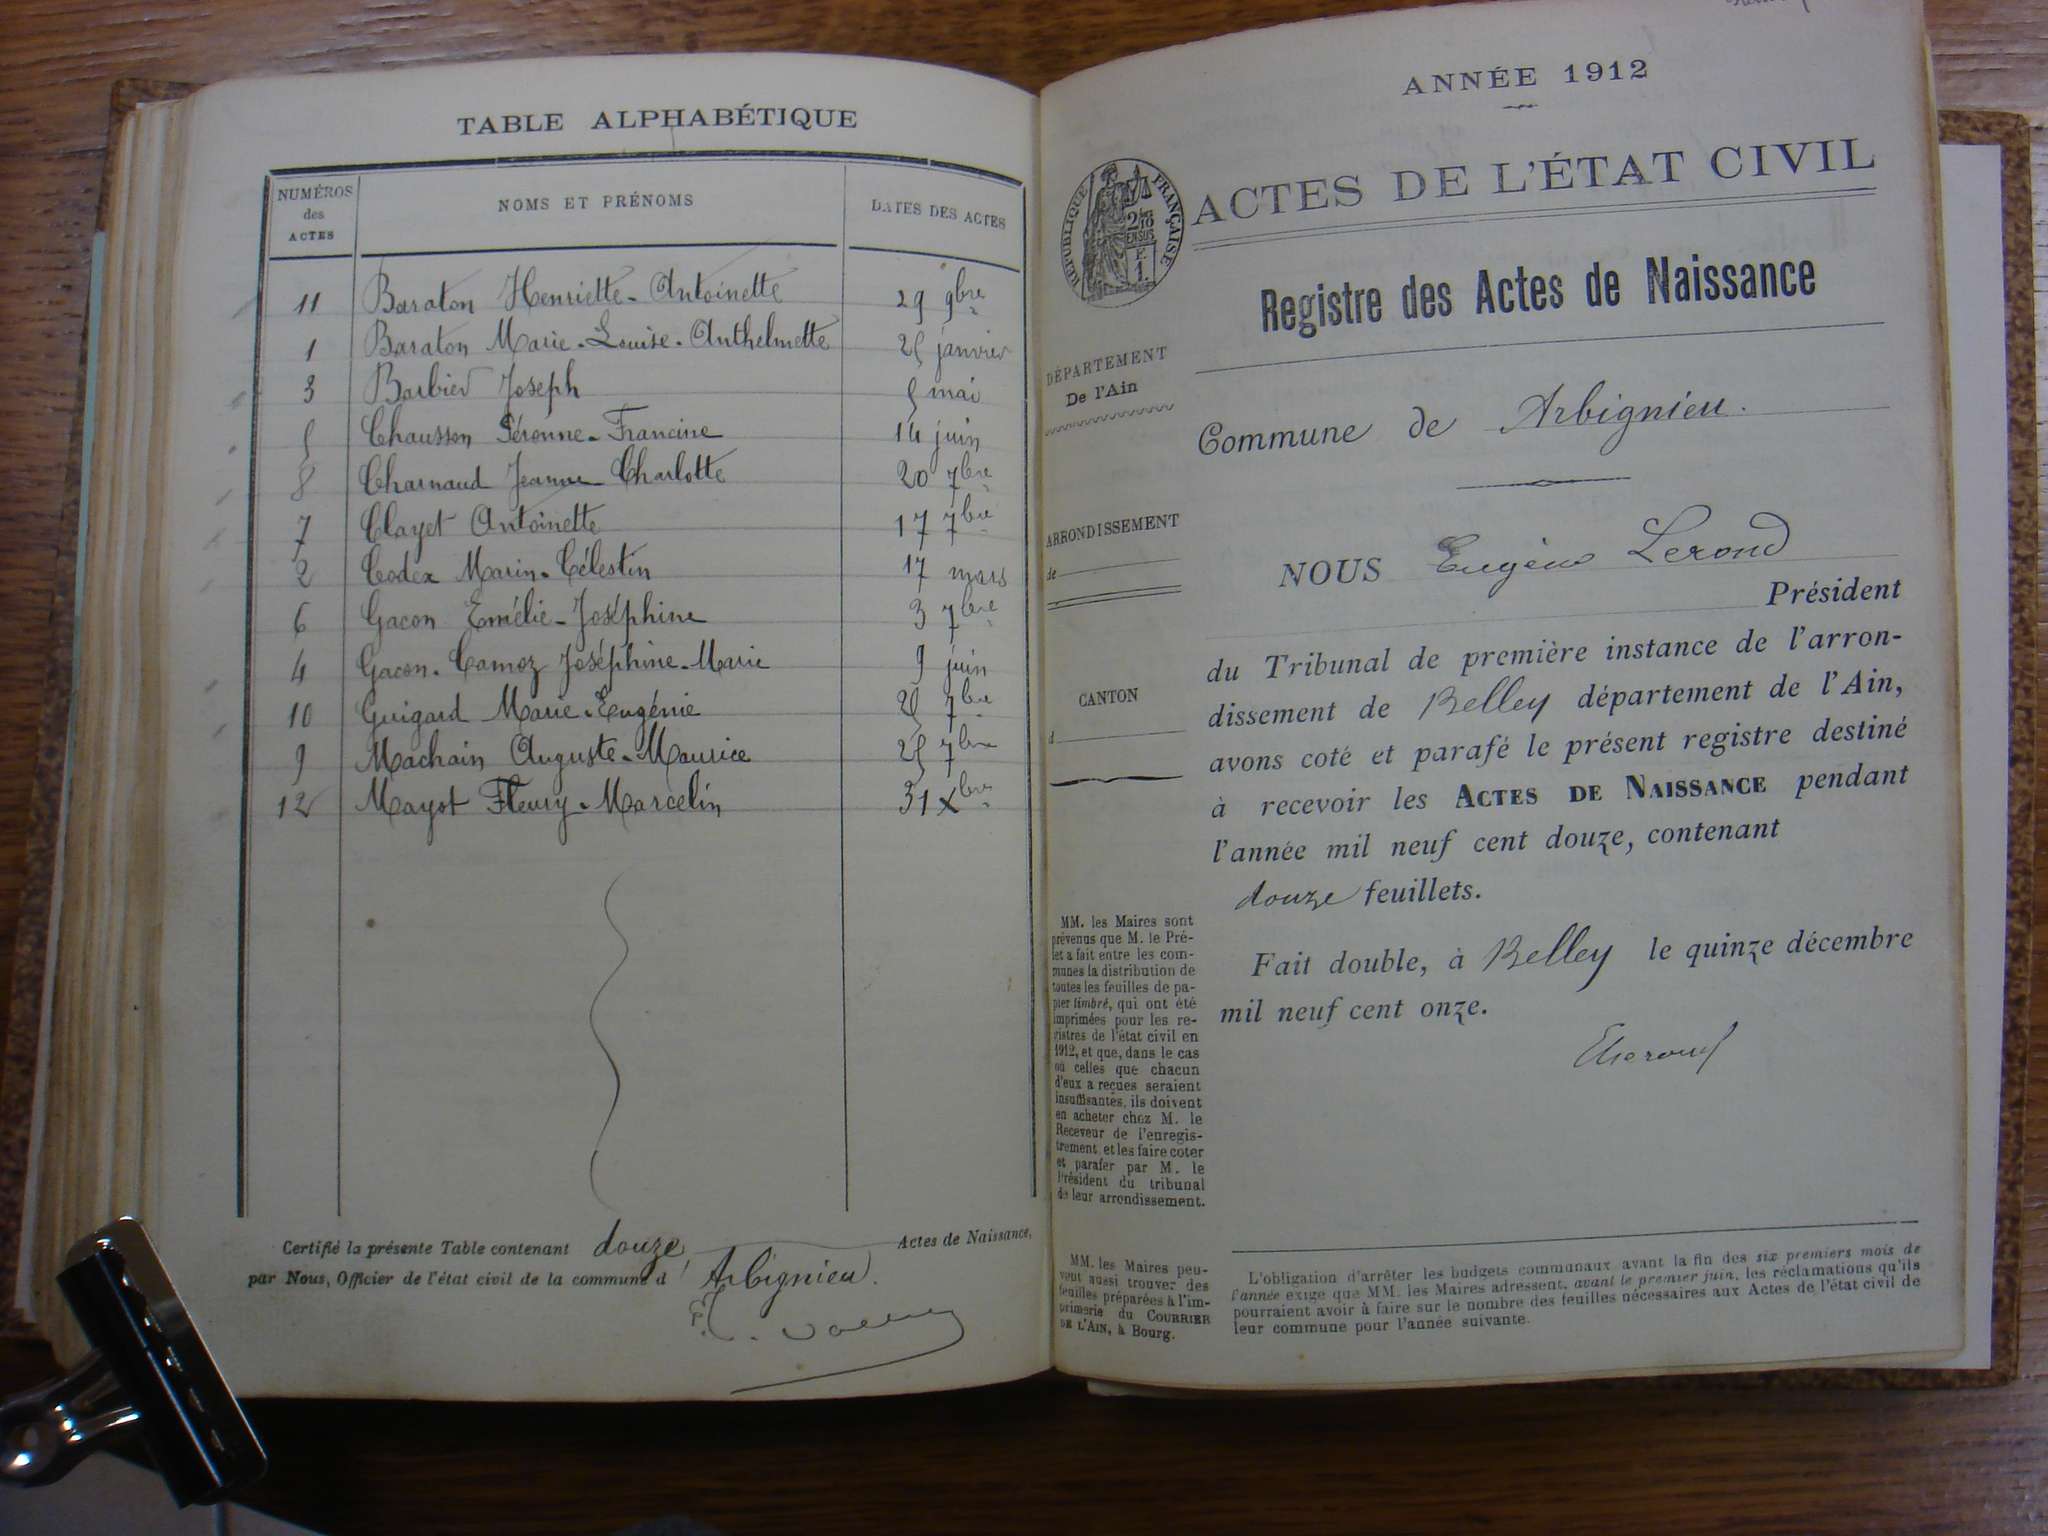 TABLE ALPHABÉTIQUE
NUMÉROS des ACTES NOMS ET PRÉNOMS DATES DES ACTES
11 Baraton Henriette-Antoinette 29 9bre
1 Baraton Marie-Louise-Anthelmette 25 janvier
3 Barbier Joseph 5 mai
5 Chausson Péronne-Francine 14 juin
8 Charnaud Jeanne-Charlotte 20 7bre
7 Clayet Antoinette 17 7bre
2 Codex Marin-Célestin 17 mars
6 Gacon Emélie-Joséphine 3 7bre
4 Gacon-Camoz Joséphine-Marie 9 juin
10 Guigard Marie-Eugénie 25 7bre
9 Machain Auguste-Maurice 25 7bre
12 Mayot Fleury-Marcelin 31 Xbre
Certifié la présente Table contenant douze Actes de Naissance,
par Nous, Officier de l'état civil de la commune d'Arbignieu.
ANNÉE 1912
ACTES DE L'ÉTAT CIVIL
RÉPUBLIQUE FRANÇAISE
Registre des Actes de Naissance
DÉPARTEMENT
De l'Ain
Commune de Arbignieu.
ARRONDISSEMENT
de
NOUS Eugène Lerond
Président
du Tribunal de première instance de l'arron-
dissement de Belley département de l'Ain,
CANTON
d
avons coté et parafé le présent registre destiné
à recevoir les ACTES DE NAISSANCE pendant
l'année mil neuf cent douze, contenant
douze feuillets.
Fait double, à Belley le quinze décembre
mil neuf cent onze.
MM. les Maires sont
prévenus que M. le Pré-
fet a fait entre les com-
munes la distribution de
toutes les feuilles de pa-
pier timbré, qui ont été
imprimées pour les re-
gistres de l'état civil en
1912, et que, dans le cas
où celles que chacun
d'eux a reçues seraient
insuffisantes, ils doivent
en acheter chez M. le
Receveur de l'enregis-
trement et les faire coter
et parafer par M. le
Président du tribunal
de leur arrondissement.
MM. les Maires peu-
vent aussi trouver des
feuilles préparées à l'im-
primerie du COURRIER
DE L'AIN, à Bourg.
L'obligation d'arrêter les budgets communaux avant la fin des six premiers mois de
l'année exige que MM. les Maires adressent, avant le premier juin, les réclamations qu'ils
pourraient avoir à faire sur le nombre des feuilles nécessaires aux Actes de l'état civil de
leur commune pour l'année suivante.